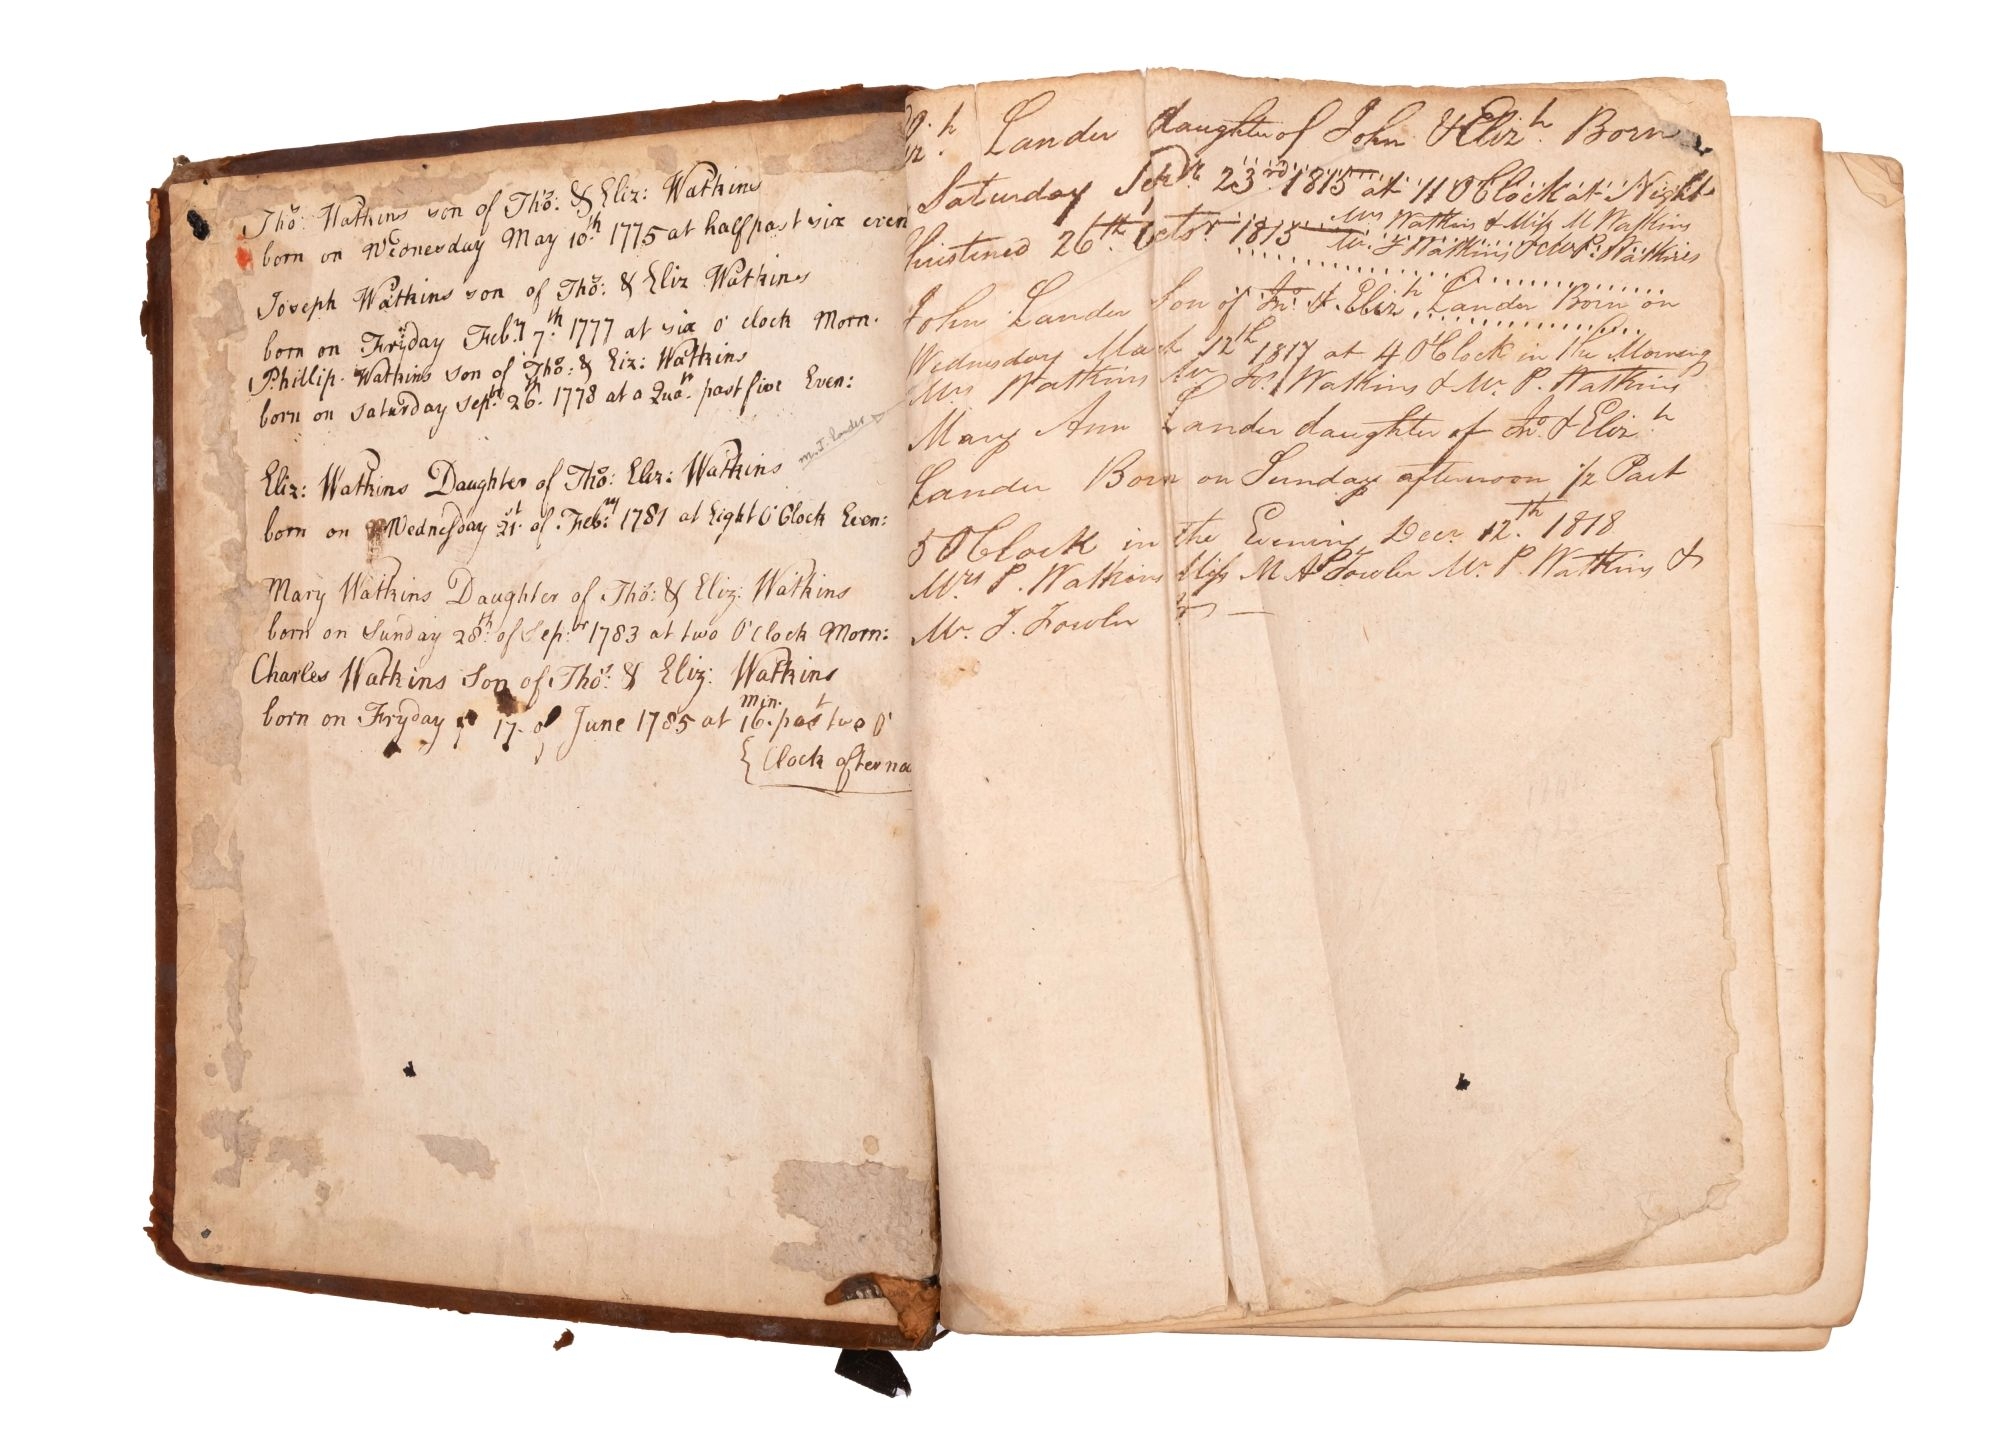 Tho: Watkins son of Tho: & Eliz: Watkins
born on Wednesday May 10th 1775 at half past six even
Joseph Watkins son of Tho: & Eliz Watkins
born on Fryday Febry 7th 1777 at six o' clock Morn.
Phillip Watkins son of Tho: & Eiz: Watkins
born on saturday sepr 26th 1778 at a Quar past five Even:
m. J. Lander
Eliz: Watkins Daughter of Tho: Eliz: Watkins
born on Wednesday 21st of Febry 1781 at Eight O'Clock Even:
Mary Watkins Daughter of Tho: & Eliz: Watkins
born on Sunday 28th of Sepr 1783 at two O'Clock Morn:
Charles Watkins Son of Tho: & Eliz: Watkins
born on Fryday 17 of June 1785 at 16 min. past two O'
{Clock afterno
Lander daughter of John & Elizh Born
Saturday Sepr 23rd 1815 at 11 OClock at Night
hristened 26th Octor 1815 Mrs Watkins & Miss M Watkins
Mr. J Watkins & Mr P. Watkins
John Lander Son of Jno. & Elizh Lander Born on
Wednesday March 12th 1817 at 4 OClock in The Morning
Mrs Watkins Mr Jos Watkins & Mr. P. Watkins
Mary Ann Lander daughter of Jno. & Elizh
Lander Born on Sunday afternoon 1/2 Past
5 OClock in the Evening Decr 12th 1818
Mrs P. Watkins Miss M A Fowler Mr. P. Watkins &
Mr. J. Fowler